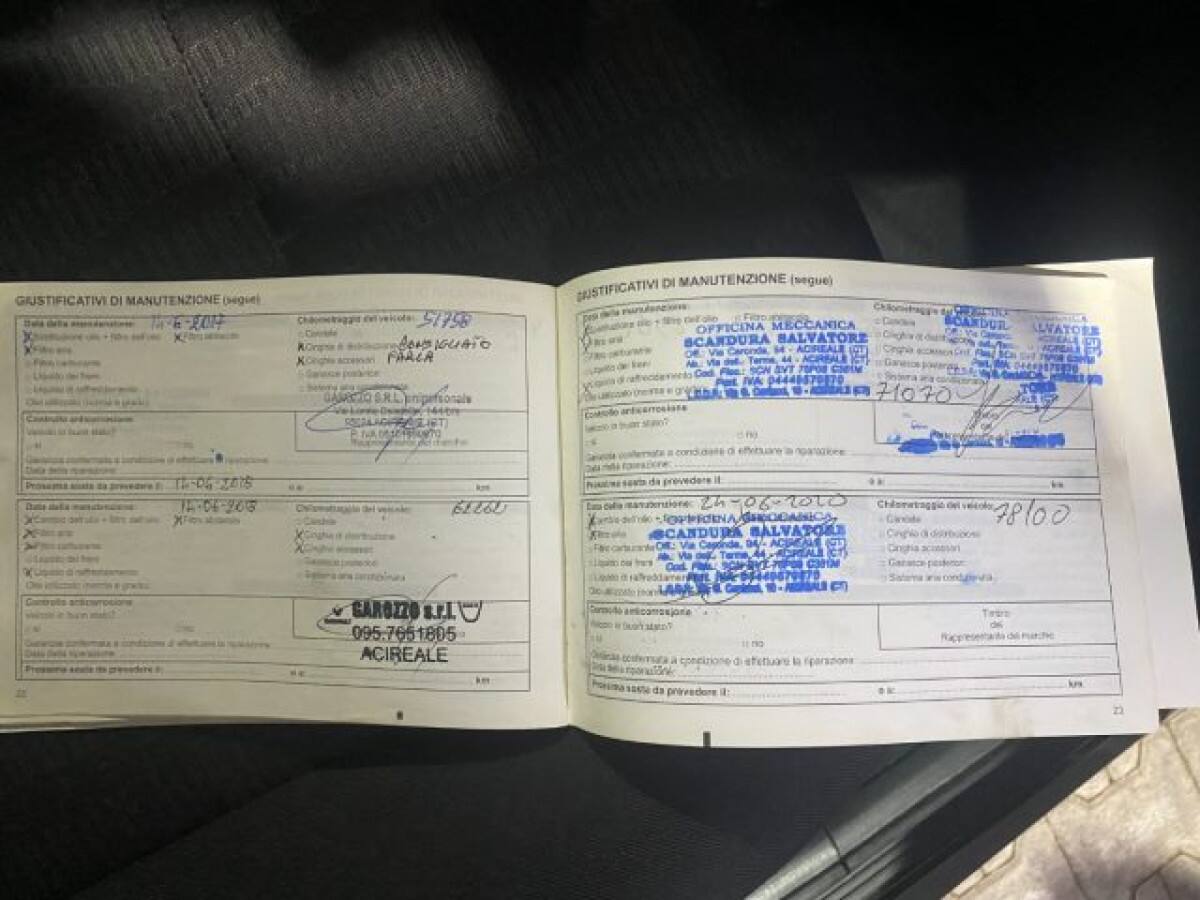 GIUSTIFICATIVI DI MANUTENZIONE (segue)
Data della manutenzione: 14-6-2017 Chilometraggio del veicolo: 51758
Sostituzione olio + filtro dell'olio Filtro abitacolo Candele
Filtro aria Cinghie di distribuzione CONSIGLIATO
Filtro carburante Cinghie accessori FARLA
Liquido dei freni Ganasce posteriori
Liquido di raffreddamento Sistema aria condizionata
Olio utilizzato (norma e grado)
GAROZZO S.R.L. unipersonale
Controllo anticorrosione
Veicolo in buon stato?
si no
Garanzia confermata a condizione di effettuare la riparazione
Data della riparazione:
Prossima sosta da prevedere il: 12-06-2018 o a: km
Data della manutenzione: 12-06-2018 Chilometraggio del veicolo:
Cambio dell'olio + filtro dell'olio Filtro abitacolo Candele
Filtro aria Cinghie di distribuzione
Filtro carburante Cinghie accessori
Liquido dei freni Ganasce posteriori
Liquido di raffreddamento Sistema aria condizionata
Olio utilizzato (norma e grado)
Controllo anticorrosione
Veicolo in buon stato?
si no
GAROZZO s.r.l.
095.7651805
ACIREALE
Garanzia confermata a condizione di effettuare la riparazione
Data della riparazione:
Prossima sosta da prevedere il: o a: km
22
GIUSTIFICATIVI DI MANUTENZIONE (segue)
Data della manutenzione: Chilometraggio del veicolo:
Sostituzione olio + filtro dell'olio Filtro abitacolo Candele
Filtro aria Cinghie di distribuzione
Filtro carburante Cinghie accessori
Liquido dei freni Ganasce posteriori
Liquido di raffreddamento Sistema aria condizionata
Olio utilizzato (norma e grado)
OFFICINA MECCANICA
SCANDURA SALVATORE
71070
Controllo anticorrosione
Veicolo in buon stato?
si no
Garanzia confermata a condizione di effettuare la riparazione:
Data della riparazione:
Prossima sosta da prevedere il: o a: km
Data della manutenzione: 24-06-2020 Chilometraggio del veicolo: 78100
Cambio dell'olio Candele
Filtro aria Cinghie di distribuzione
Filtro carburante Cinghia accessori
Liquido dei freni Ganasce posteriori
Liquido di raffreddamento Sistema aria condizionata
Olio utilizzato
OFFICINA MECCANICA
SCANDURA SALVATORE
Controllo anticorrosione
Veicolo in buon stato?
si no
Timbro
del
Rappresentante del marchio
Garanzia confermata a condizione di effettuare la riparazione:
Data della riparazione:
Prossima sosta da prevedere il: o a: km
23